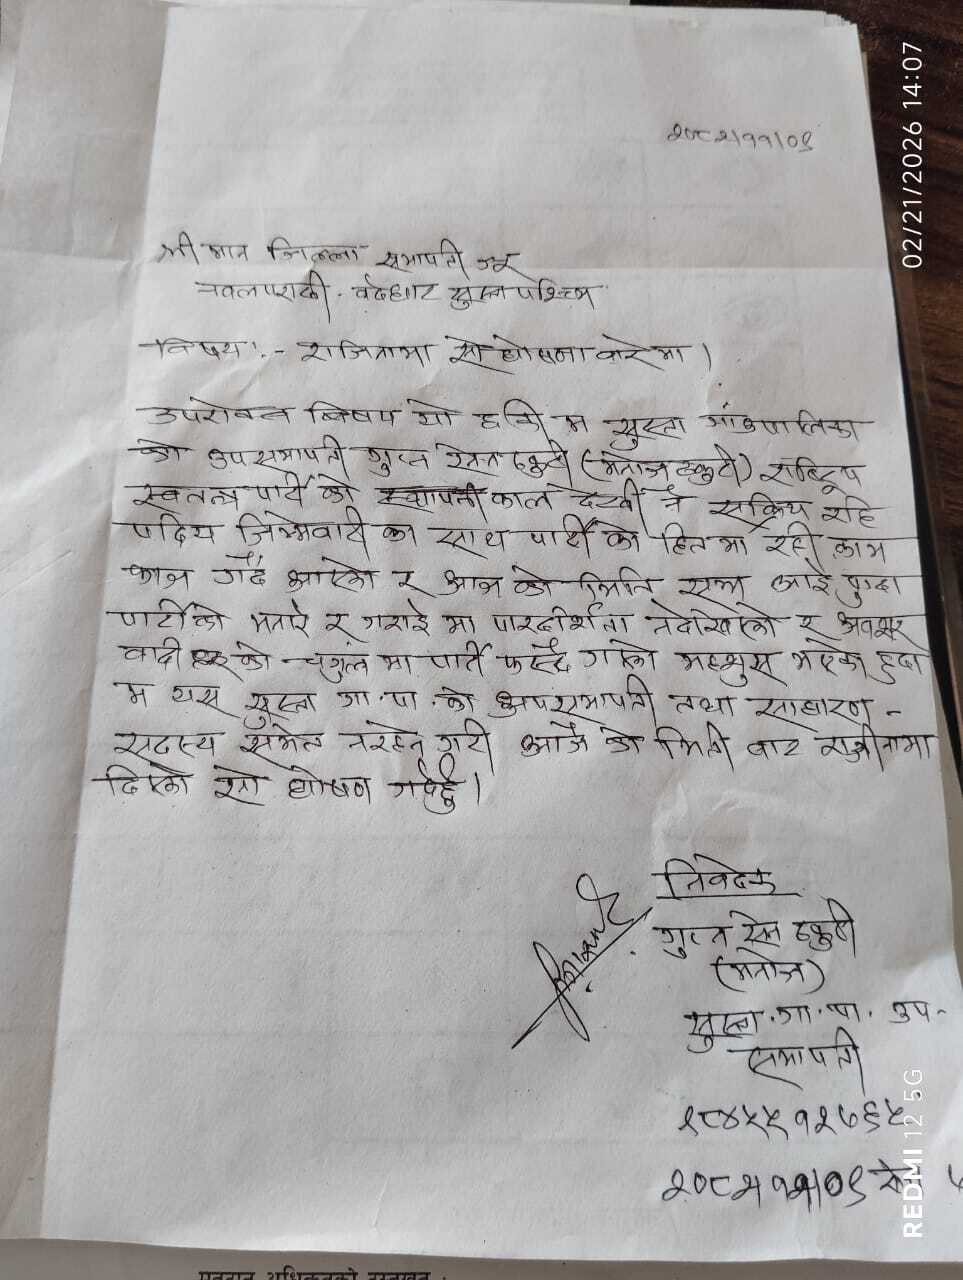 २०८२/११/०९
श्रीमान जिल्ला सभापती ज्यू
नवलपरासी. वर्दघाट सुस्ता पश्चिम
विषय :- राजिनामा सो घोषना बारे मा ।
उपरोक्त विषय यो छ की म सुस्ता गांउपालिका
को उपसभापती गुप्त रतन ढकुटी (मनोज ढकुटी) राष्ट्रिय
स्वतन्त्र पार्टी को स्थापना काल देखी नै सक्रिय रहि
पदिय जिम्मेवारी का साथ पार्टी को हित मा रही काम
काज गर्दै आएको र आज को मिति सम्म आई पुग्दा
पार्टी को भनाई र गराई मा पारदर्शिता नदेखिएको र अवसर
वादी हरु को चंगुल मा पार्टी फस्दै गएको महसुस भएको हुदा
म यस सुस्ता गा.पा. को उपसभापती तथा साधारण -
सदस्य समेत नरहने गरी आजै को मिती बाट राजीनामा
दिएको सो घोषणा गर्दछु ।
निवेदक
गुप्त रतन ढकुटी
(मनोज)
सुस्ता.गा.पा. उप-
सभापती
०२/२१/2026 14:07
REDMI 12 5G
२०८२/११/०९
मतदान अधिकृतको दस्तखत :